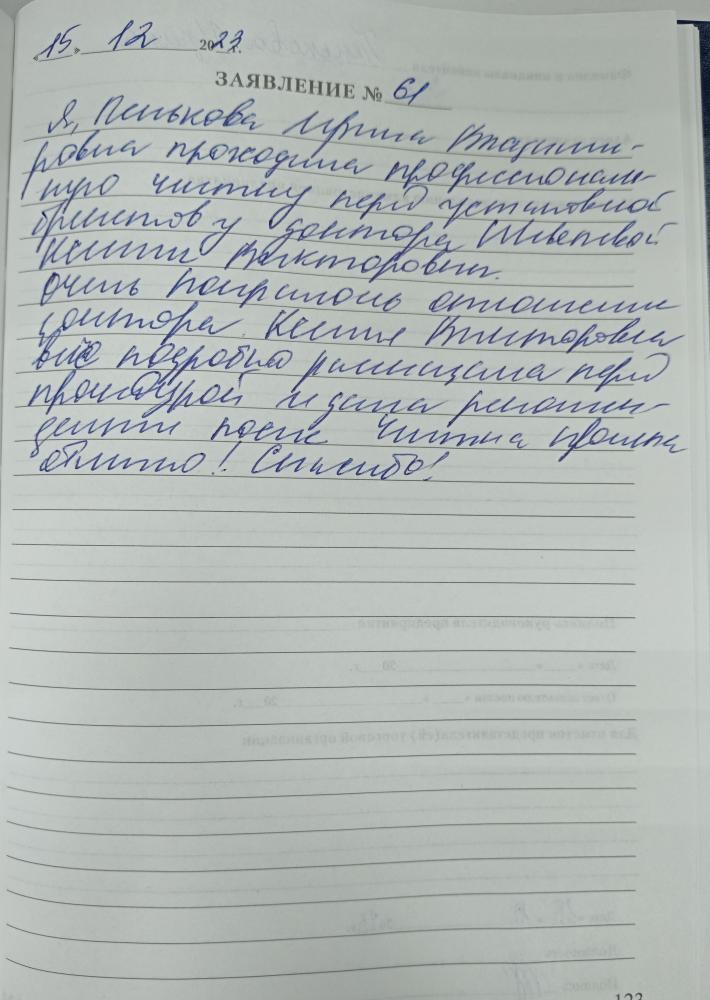 «15» 12 2023 г.
ЗАЯВЛЕНИЕ № 61
Я, Пенькова Ирина Владими-
ровна проходила профессиональ-
ную чистку перед установкой
брекетов у доктора Швецовой
Ксении Викторовны.
Очень понравилось отношение
доктора. Ксения Викторовна
всё подробно расписала перед
процедурой и дала рекомен-
дации после. Чистка прошла
отлично! Спасибо!
123